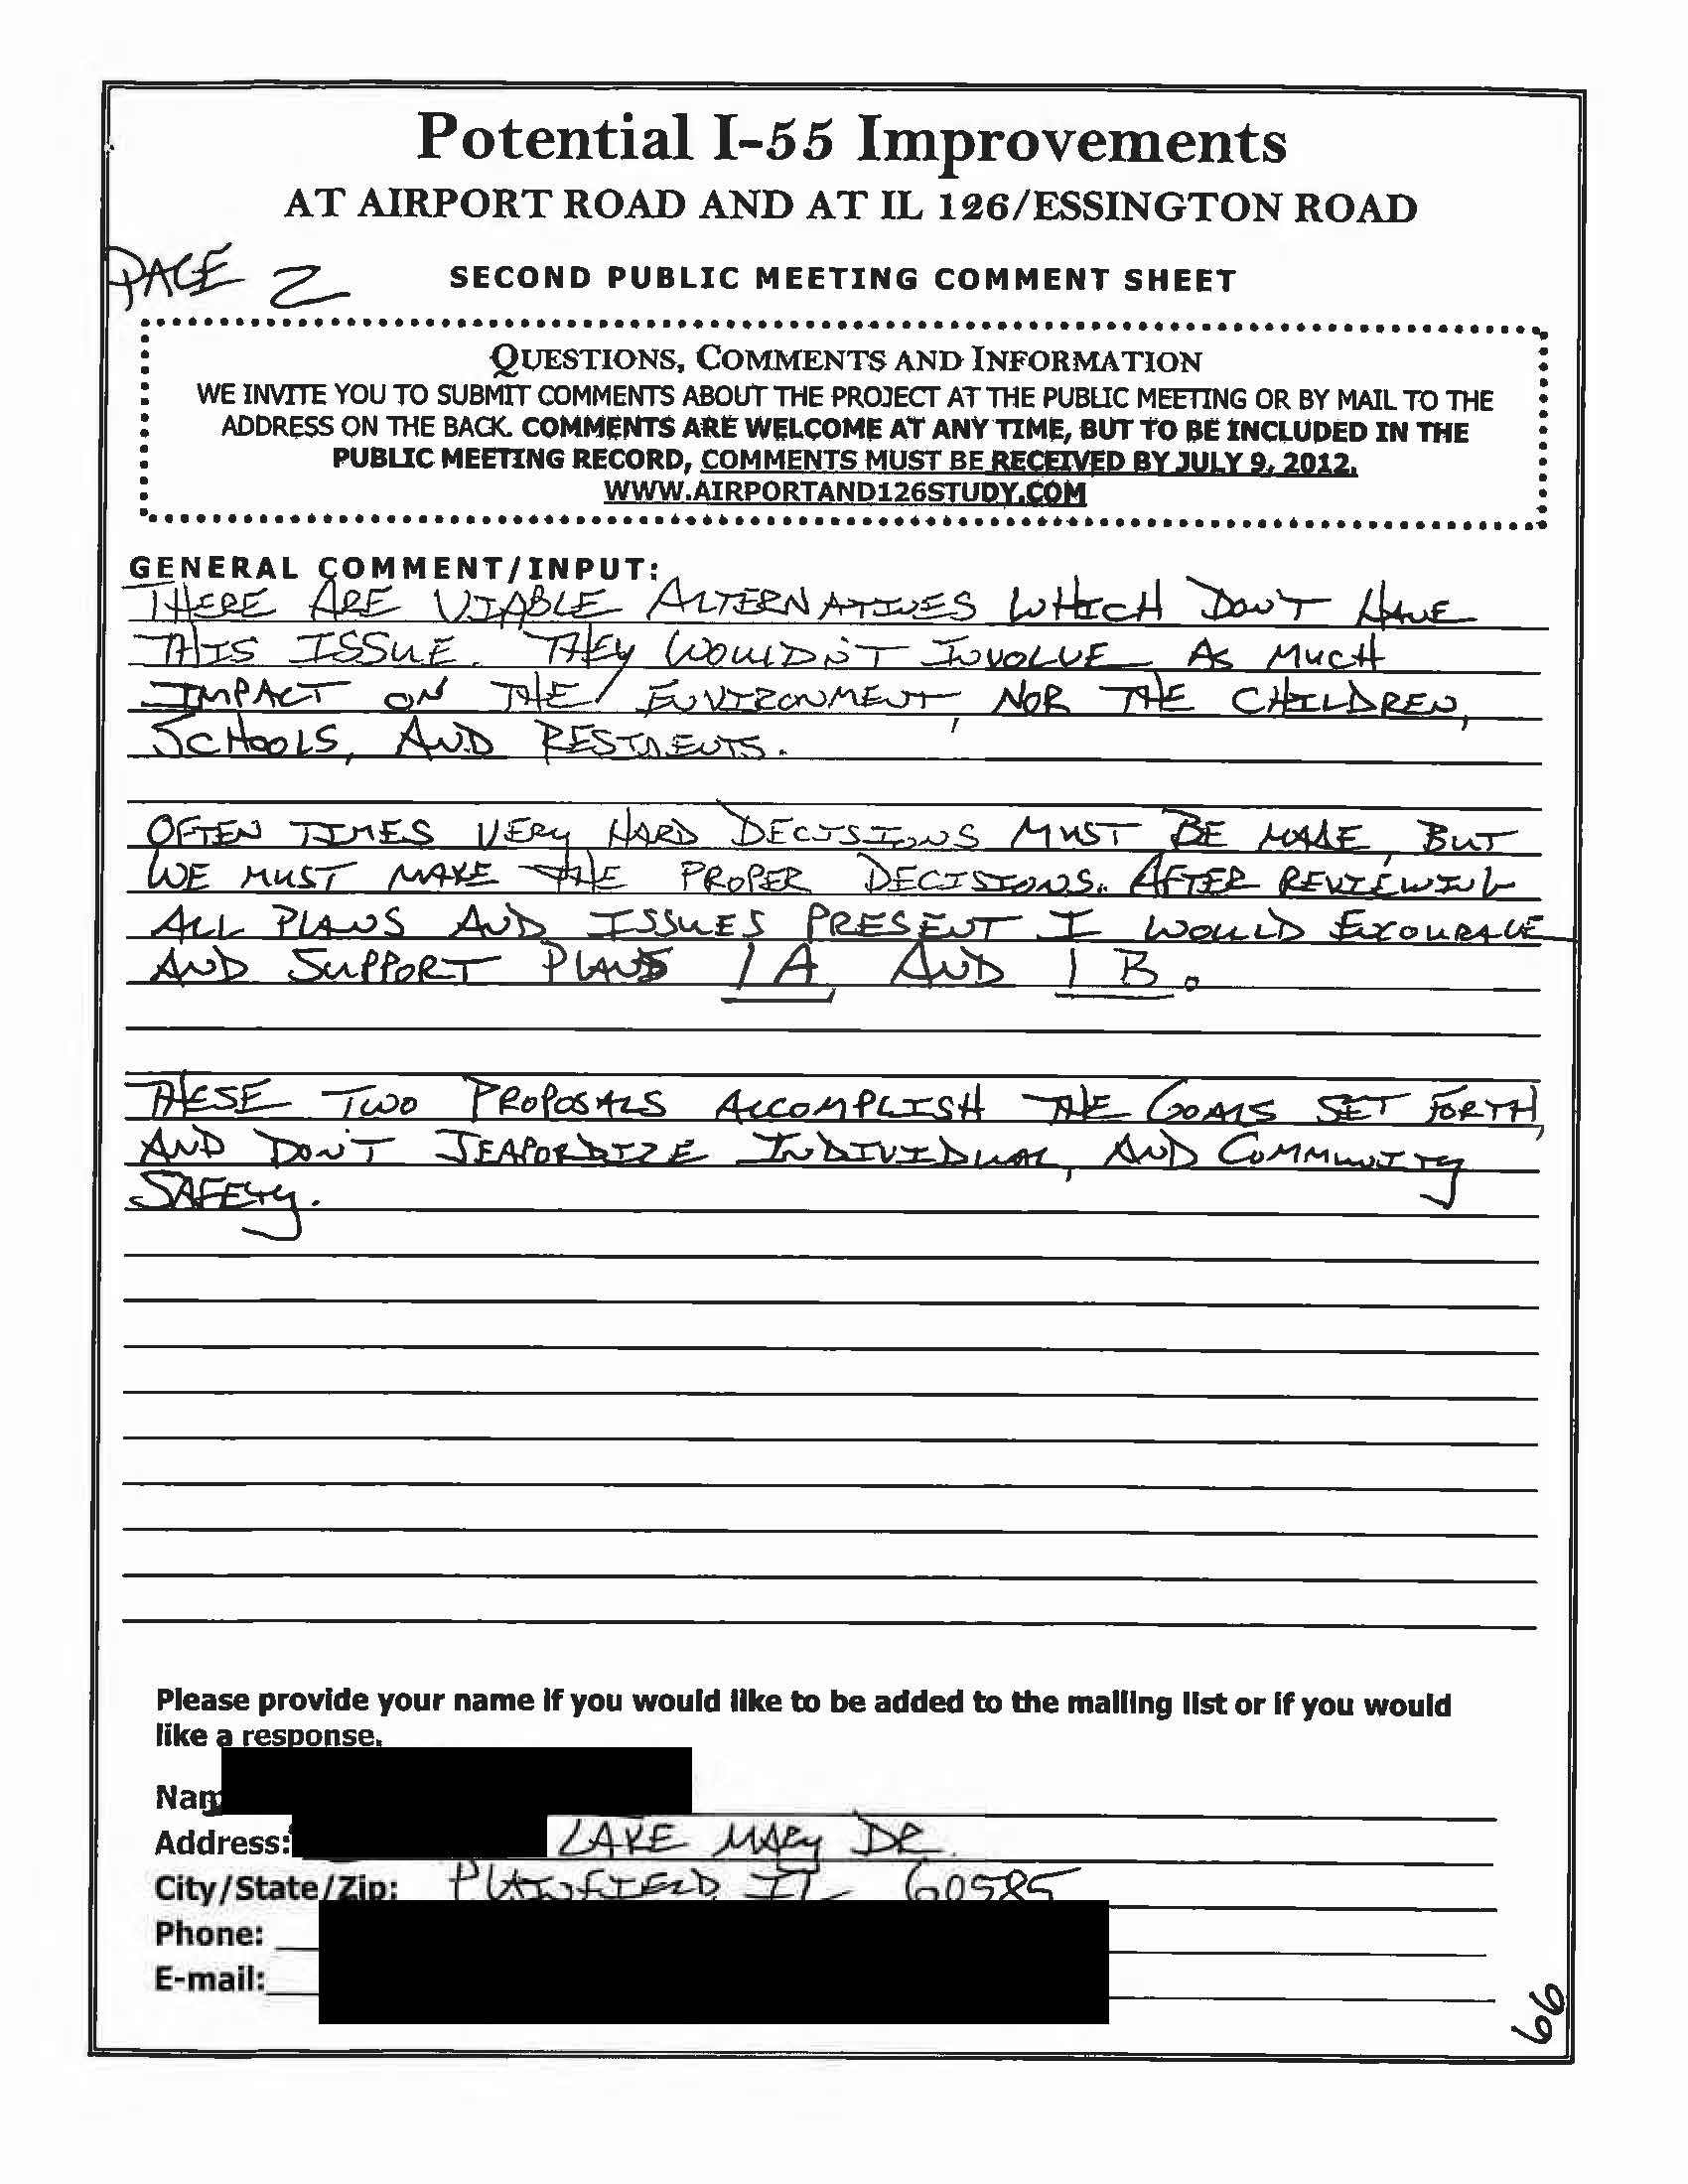 Potential I-55 Improvements
AT AIRPORT ROAD AND AT IL 126/ESSINGTON ROAD
PAGE 2
SECOND PUBLIC MEETING COMMENT SHEET
QUESTIONS, COMMENTS AND INFORMATION
WE INVITE YOU TO SUBMIT COMMENTS ABOUT THE PROJECT AT THE PUBLIC MEETING OR BY MAIL TO THE
ADDRESS ON THE BACK. COMMENTS ARE WELCOME AT ANY TIME, BUT TO BE INCLUDED IN THE
PUBLIC MEETING RECORD, COMMENTS MUST BE RECEIVED BY JULY 9, 2012.
WWW.AIRPORTAND126STUDY.COM
GENERAL COMMENT/INPUT:
THERE ARE VIABLE ALTERNATIVES WHICH DON'T HAVE
THIS ISSUE. THEY WOULDN'T INVOLVE AS MUCH
IMPACT ON THE ENVIRONMENT, NOR THE CHILDREN,
SCHOOLS, AND RESIDENTS.
OFTEN TIMES VERY HARD DECISIONS MUST BE MADE, BUT
WE MUST MAKE THE PROPER DECISIONS. AFTER REVIEWING
ALL PLANS AND ISSUES PRESENT I WOULD ENCOURAGE
AND SUPPORT PLANS 1A AND 1B.
THESE TWO PROPOSALS ACCOMPLISH THE GOALS SET FORTH,
AND DON'T JEAPORDIZE INDIVIDUAL, AND COMMUNITY
SAFETY.
Please provide your name if you would like to be added to the mailing list or if you would
like a response.
Nam
Address: LAKE MARY DR.
City/State/Zip: PLAINFIELD IL 60585
Phone:
E-mail:
66